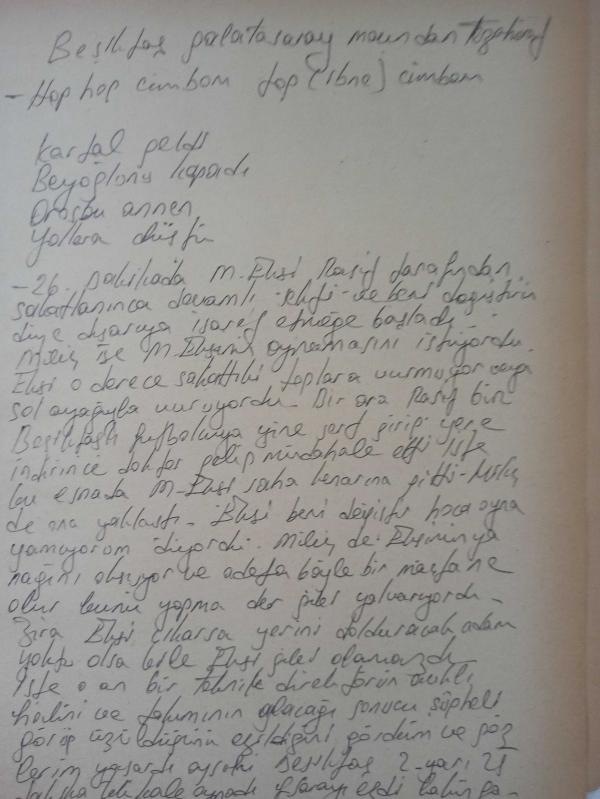 Beşiktaş galatasaray maçından Tezahürat
- Hop hop cimbom top (ibne) cimbom
Kartal geldi
Beyoğlunu kapadı
Orospu annen
Yollara düştü
- 26. Dakikada M. Ekşi Rasif tarafından
sakatlanınca devamlı Ekşi ve beni değiştirin
diye dışarıya işaret etmeğe başladı
Miliç ise M. Ekşinin oynamasını istiyordu.
Ekşi o derece sakattıki toplara vurmuyor veya
sol ayağıyla vuruyordu. Bir ara Rasif bir
Beşiktaşlı futbolcuya yine sert girip yere
indirince doktor gelip müdahale etti işte
bu esnada M. Ekşi saha kenarına gitti. Miliç
de ona yaklaştı. Ekşi beni değiştir hoca oyna
yamıyorum diyordu. Miliç de Ekşinin ya
nağını okşuyor ve adeta böyle bir maçta ne
olur bunu yapma der gibi yalvarıyordu.
Zira Ekşi çıkarsa yerini dolduracak adam
yoktu olsa bile Ekşi gibi olamazdı
İşte o an bir teknik direktörün halini
ve takımının alacağı sonucu şüpheli
görüp üzüldüğünü ezildiğini gördüm ve göz
lerim yaşardı ayrıca Beşiktaş 2. yarı 25
dakika tek kale oynadı